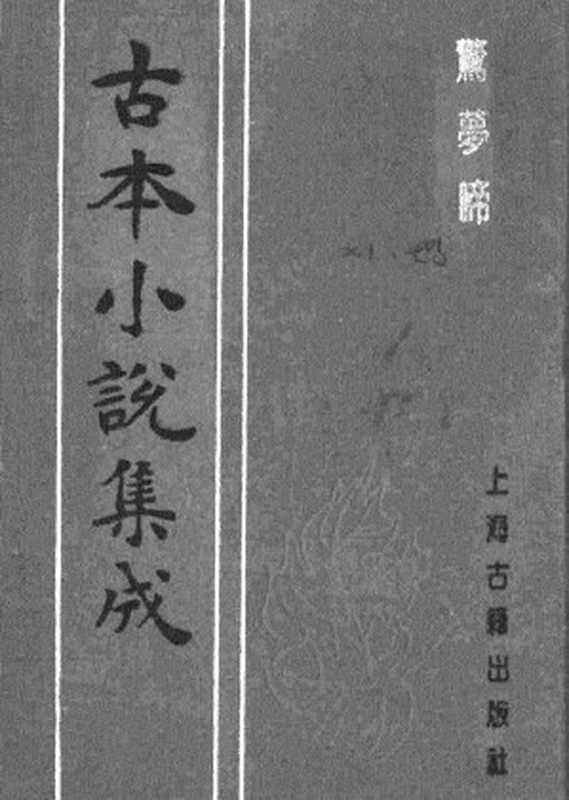 驚夢啼
上海古籍出版社
古本小說集成